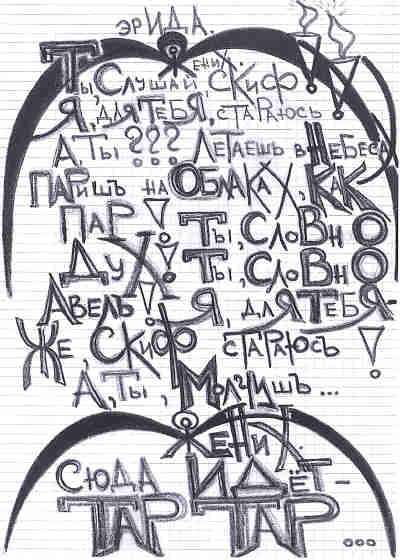 ЭРИДА.
ЖЕНИХ.
Ты, Слушай, Скиф
Я, для ТЕБЯ, стАРАюсь
А, Ты ??? Летаешь в Небеса
ПАРишъ на ОБЛАКАХ, КАК
ПАР! Ты, СЛОВНО
ДУХ! Ты, СЛОВНО
АВЕЛЬ! Я, для ТЕБЯ-
ЖЕ, СКИФ стАРАюсь!
А, Ты, Молчишь...
ЖЕНИХ.
СЮДА ИДЁТ-
ТАР ТАР...